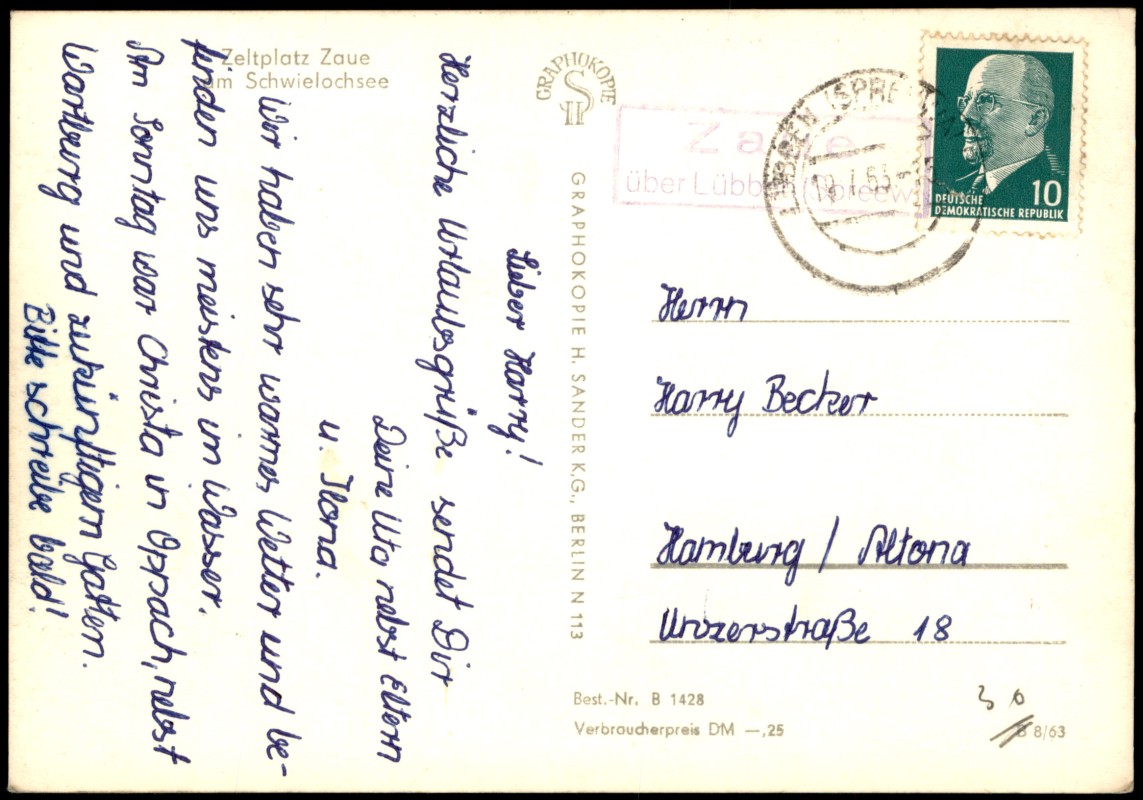 Zeltplatz Zaue
am Schwielochsee
Lieber Harry!
Herzliche Urlaubsgrüße sendet Dir
Deine Uta, nebst Eltern
u. Ilona.
Wir haben sehr warmes Wetter und be-
finden uns meistens im Wasser.
Am Sonntag war Christa in Oppach, nebst
Wartburg und zukünftigem Gatten.
Bitte schreibe bald!
GRAPHOKOPIE
H S
GRAPHOKOPIE H. SANDER K.G., BERLIN N 113
Zaue
über Lübben (Spreew
LÜBBEN (SPREE
DEUTSCHE
DEMOKRATISCHE REPUBLIK
10
Herrn
Harry Becker
Hamburg / Altona
Unzerstraße 18
Best.-Nr. B 1428
Verbraucherpreis DM —,25
30
8/63